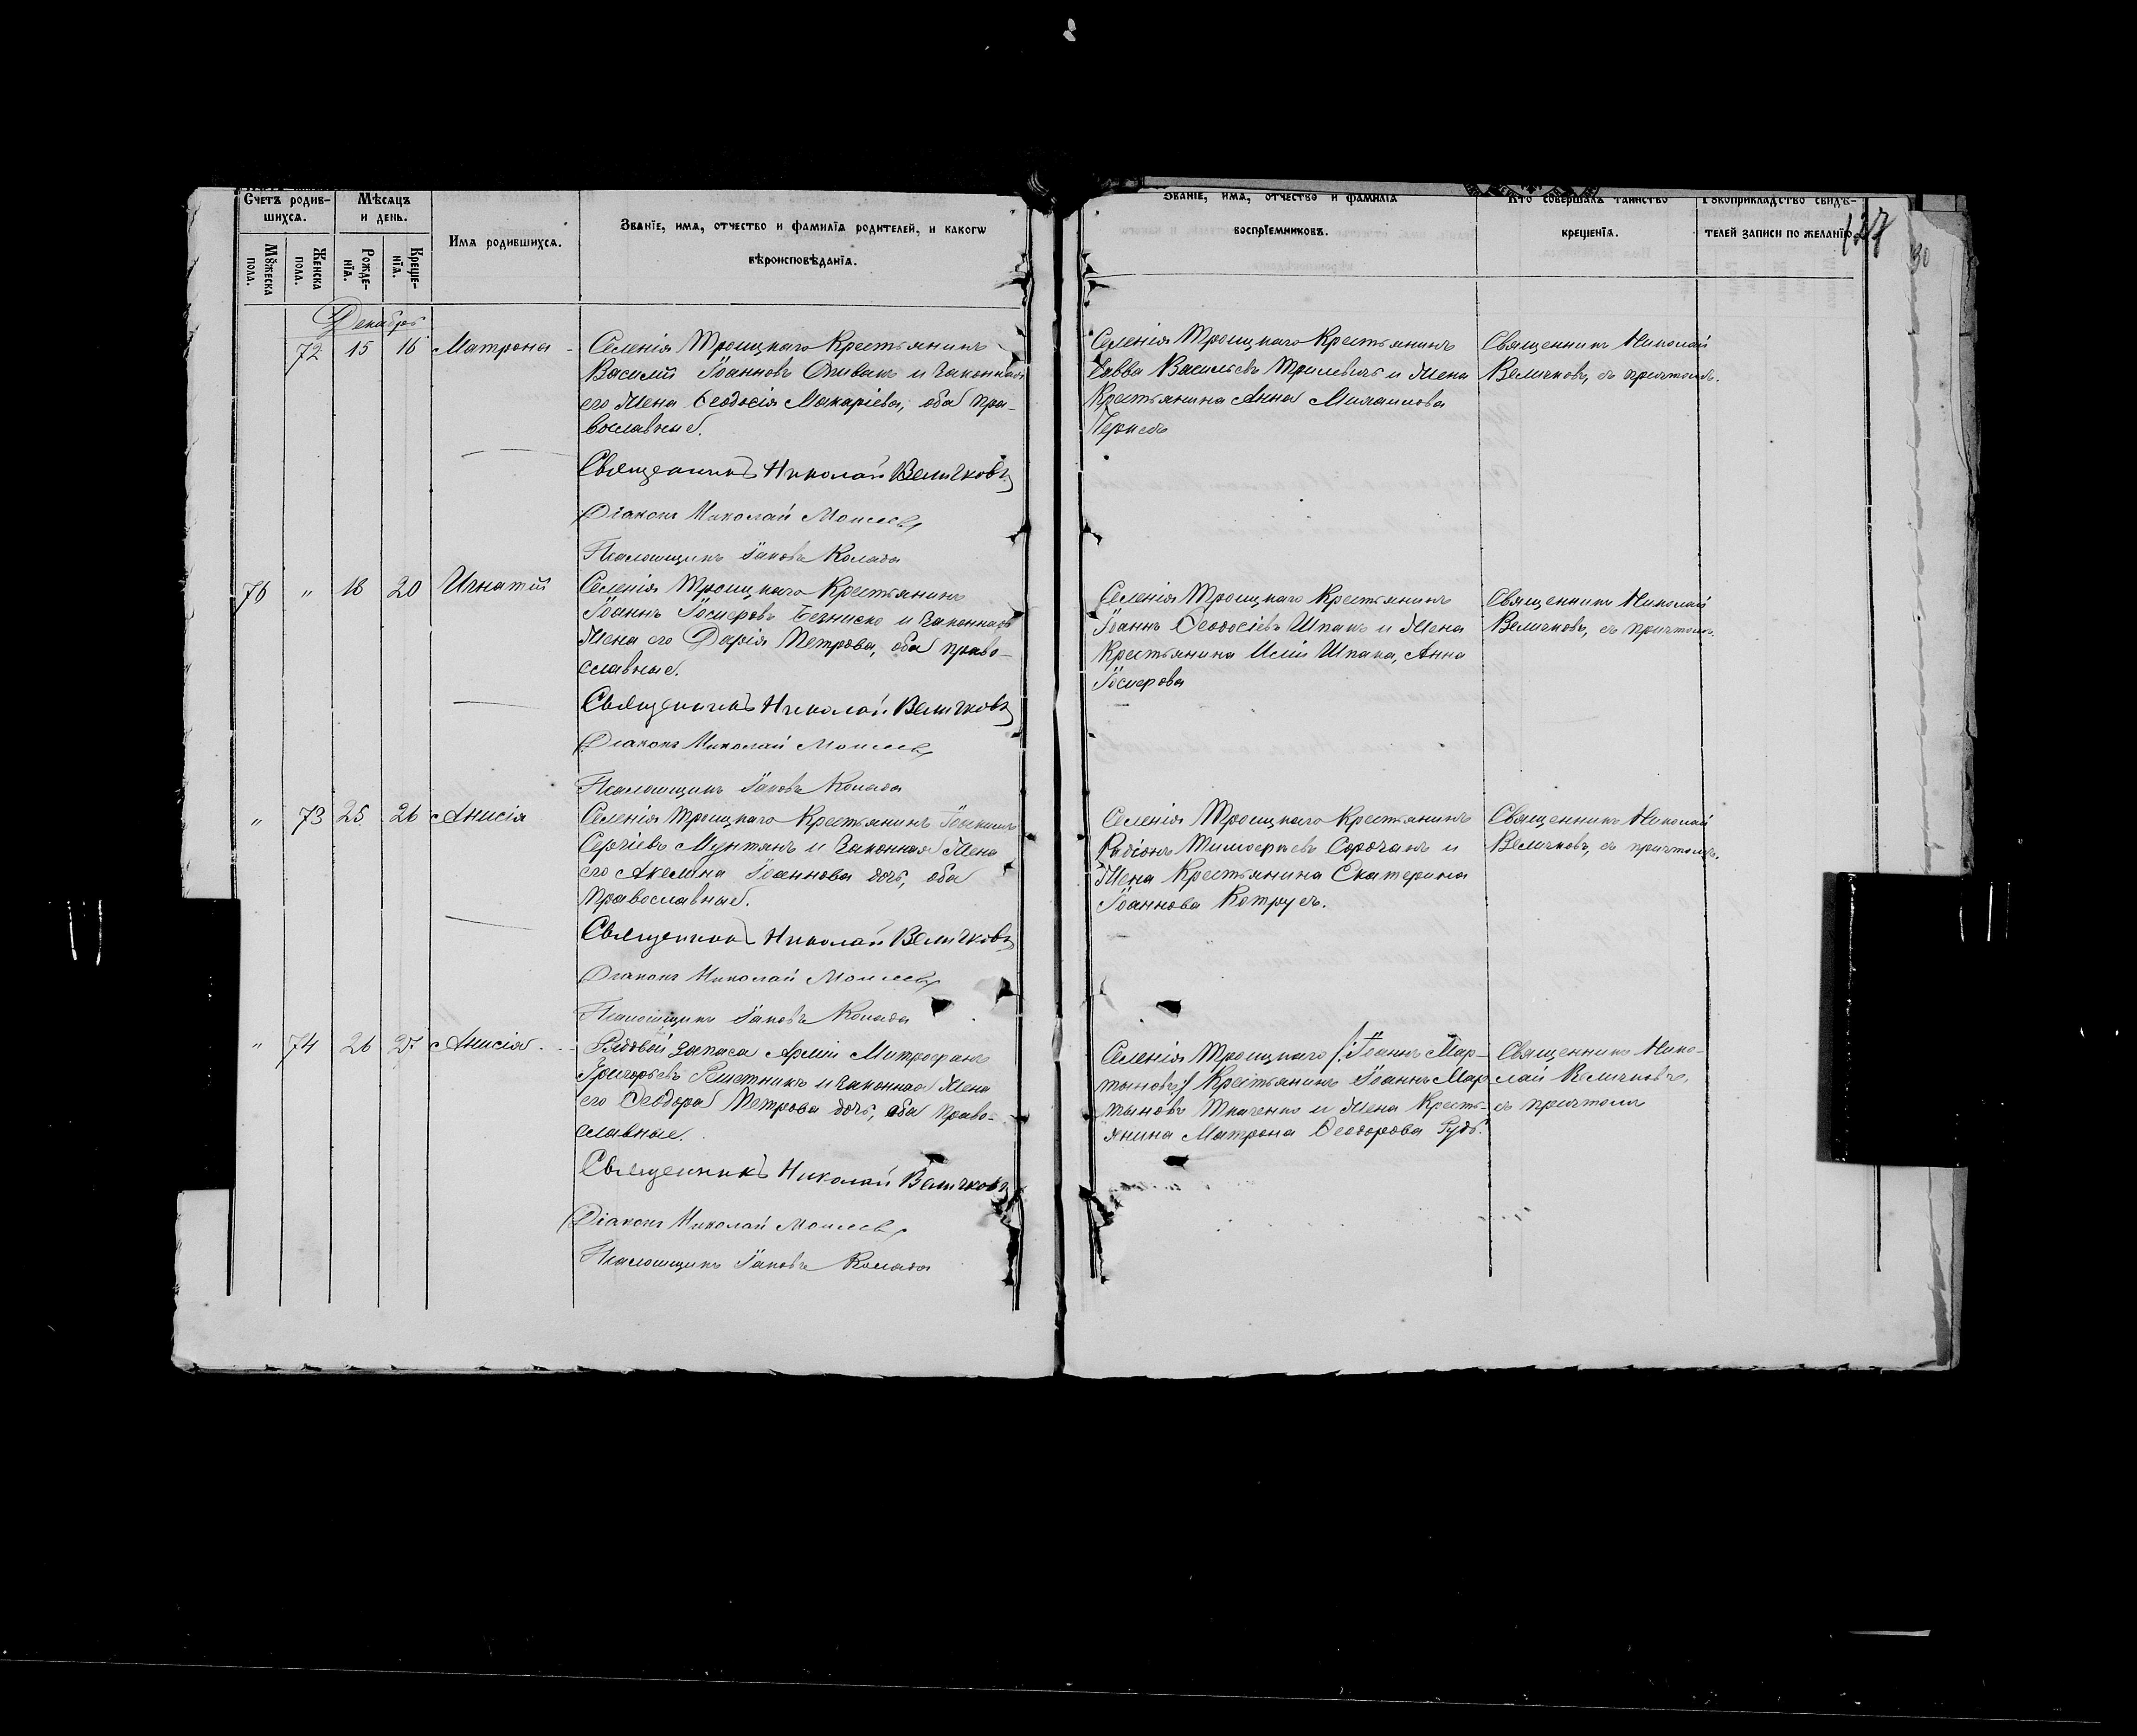 Счетъ родив-
шихся.
Мѣсяцъ
и день.
Мужеска
пола.
Женска
пола.
Рожде-
нія.
Креще-
нія.
Имя родившихся.
Званіе, имя, отчество и фамилія родителей, и какогѡ
вѣроисповѣданія.
Декабрь
72 15 16 Матрона
Селенія Троицкаго Крестьянинъ
Василій Іоанновъ Спивакъ и законная
его жена Ѳеодосія Макаріева, оба пра-
вославные.
Священникъ Николай Величковъ
Діаконъ Николай Моисеевъ
Псаломщикъ Іаковъ Колада
76 „ 18 20 Игнатій
Селенія Троицкаго Крестьянинъ
Іоаннъ Іосифовъ и законная
жена его Дарія Петрова, оба право-
славные.
Священникъ Николай Величковъ
Діаконъ Николай Моисеевъ
Псаломщикъ Іаковъ Колада
„ 73 25 26 Анисія
Селенія Троицкаго Крестьянинъ Іоакимъ
Сергіевъ Мунтянъ и законная жена
его Акелина Іоаннова дочь, оба
православные.
Священникъ Николай Величковъ
Діаконъ Николай Моисеевъ
Псаломщикъ Іаковъ Колада
„ 74 26 27 Анисія
Рядовой запаса Арміи Митрофанъ
Григорьевъ Решетникъ и законная жена
его Ѳеодора Петрова дочь, оба право-
славные.
Священникъ Николай Величковъ
Діаконъ Николай Моисеевъ
Псаломщикъ Іаковъ Колада
Званіе, имя, отчество и фамилія
воспріемниковъ.
Кто совершалъ таинство
крещенія.
Рукоприкладство свидѣ-
телей записи по желанію.
137
30
Селенія Троицкаго Крестьянинъ
Савва Васильевъ и жена
Крестьянина Анна Михаилова
Священникъ Николай
Величковъ, съ причтомъ.
Селенія Троицкаго Крестьянинъ
Іоаннъ Ѳеодосіевъ Шпакъ и жена
Крестьянина Иліи Шпака, Анна
Іосифова
Священникъ Николай
Величковъ, съ причтомъ.
Селенія Троицкаго Крестьянинъ
Родіонъ Тимофеевъ Сорочанъ и
жена Крестьянина Екатерина
Іоаннова Котрусъ.
Священникъ Николай
Величковъ, съ причтомъ.
Селенія Троицкаго /:Іоаннъ Мар-
тыновъ:/ Крестьянинъ Іоаннъ Мар
тыновъ Ткаченко и жена Кресть-
янина Матрона Ѳеодорова Рудь.
Священникъ Нико-
лай Величковъ,
съ причтомъ